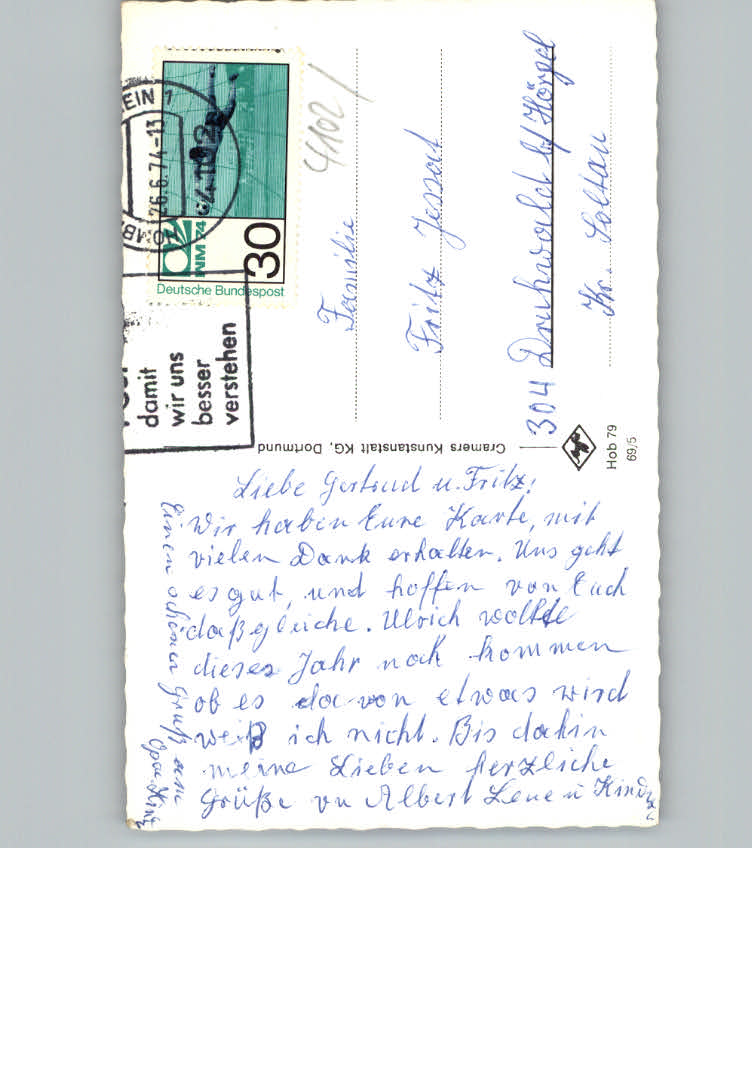 Liebe Gertrud u. Fritz!
Wir haben Eure Karte, mit
vielen Dank erhalten. Uns geht
es gut, und hoffen von Euch
daßgleiche. Ulrich wollte
dieses Jahr noch kommen
ob es da von etwas wird
weiß ich nicht. Bis dahin
meine Lieben herzliche
Grüße von Albert Lene u Kinder
Einen schönen Gruß an
Opa
Familie
Fritz Jessat
304 Druhwald b/ Hörpel
Kr. Soltau
41021
EIN 1
26.6.74-13
HOMB
damit
wir uns
besser
verstehen
30
WM 74
Deutsche Bundespost
Cramers Kunstanstalt KG, Dortmund
Hob 79
69/5